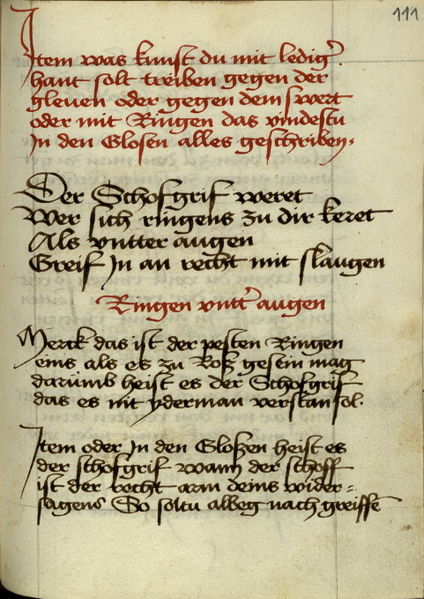 111
Item was kunst du mit ledig̉
hant solt treiben gegen der
gleuen oder gegen dem swert
oder mit Ringen das vindestu
In den Glosen alles geschriben·
Der Schofgrif weret
Wer sich ringens zu dir keret
Als vntter augen
Greif In an recht mit slaugen
Ringen vntt̉ augen
Merck das ist der pesten Ringen
eins als es zu Roß gesein mag
darumb heist es der Schofgrif
das es nit yderman verstan sol·
Item oder In den Gloßen heist es
der schofgrif wann der schoff
ist der recht arm deins wider=
sagens So soltu albeg nach greiffe̅